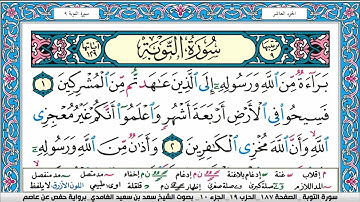 الجزء العاشر
سورة التوبة ٩
سُورَةُ التَّوْبَةِ
بَرَآءَةٌ مِّنَ ٱللَّهِ وَرَسُولِهِۦٓ إِلَى ٱلَّذِينَ عَٰهَدتُّم مِّنَ ٱلْمُشْرِكِينَ ١
فَسِيحُوا۟ فِى ٱلْأَرْضِ أَرْبَعَةَ أَشْهُرٍ وَٱعْلَمُوٓا۟ أَنَّكُمْ غَيْرُ مُعْجِزِى
ٱللَّهِ وَأَنَّ ٱللَّهَ مُخْزِى ٱلْكَٰفِرِينَ ٢ وَأَذَٰنٌ مِّنَ ٱللَّهِ وَرَسُولِهِۦٓ
سورة التوبة الصفحة ١٨٧ الحزب ١٩ الجزء ١٠ بصوت الشيخ سعد بن سعيد الغامدي برواية حفص عن عاصم